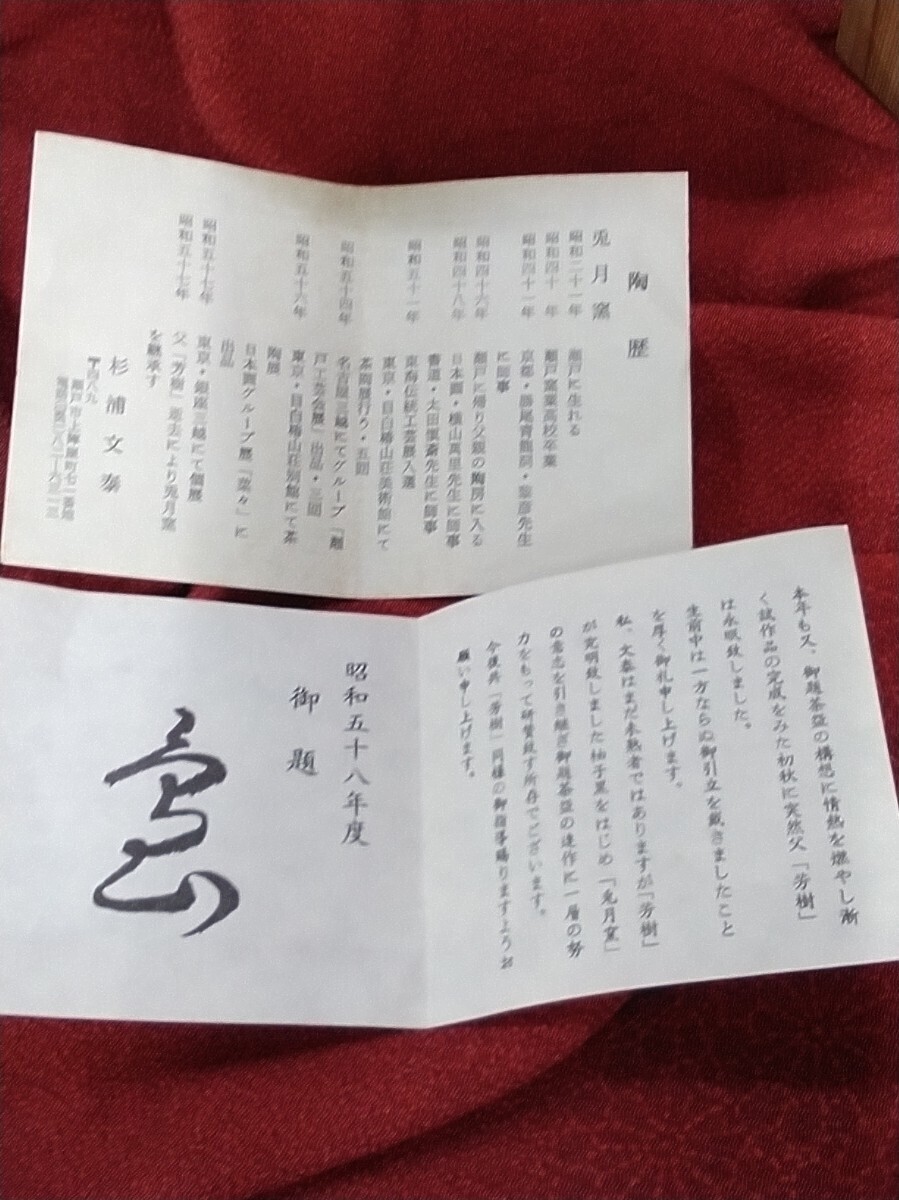 陶歴
兎月窯
昭和二十一年 瀬戸に生れる
昭和四十年 瀬戸窯業高校卒業
昭和四十一年 京都・勝尾青龍洞・黎彦先生
に師事
昭和四十六年 瀬戸に帰り父親の陶房に入る
昭和四十八年 日本画・横山万里先生に師事
書道・太田慎斎先生に師事
昭和五十一年 東海伝統工芸展入選
東京・目白椿山荘美術館にて
茶陶展行う・五回
昭和五十四年 名古屋三越にてグループ「瀬
戸工芸会展」出品・三回
昭和五十六年 東京・目白椿山荘別館にて茶
陶展
日本画グループ展「菜々」に
出品
昭和五十七年 東京・銀座三越にて個展
昭和五十七年 父「芳樹」逝去により兎月窯
を継承す
杉浦文泰
〒四八九
瀬戸市上陣屋町七一番地
本年も又、御題茶盌の構想に情熱を燃やし漸
く試作品の完成をみた初秋に突然父「芳樹」
は永眠致しました。
生前中は一方ならぬ御引立を戴きましたこと
を厚く御礼申し上げます。
私、文泰はまだ未熟者ではありますが「芳樹」
が究明致しました柚子黒をはじめ「兎月窯」
の意志を引き継ぎ御題茶盌の連作に一層の努
力をもって研賛致す所存でございます。
今後共「芳樹」同様の御指導賜りますようお
願い申し上げます。
昭和五十八年度
御題
島